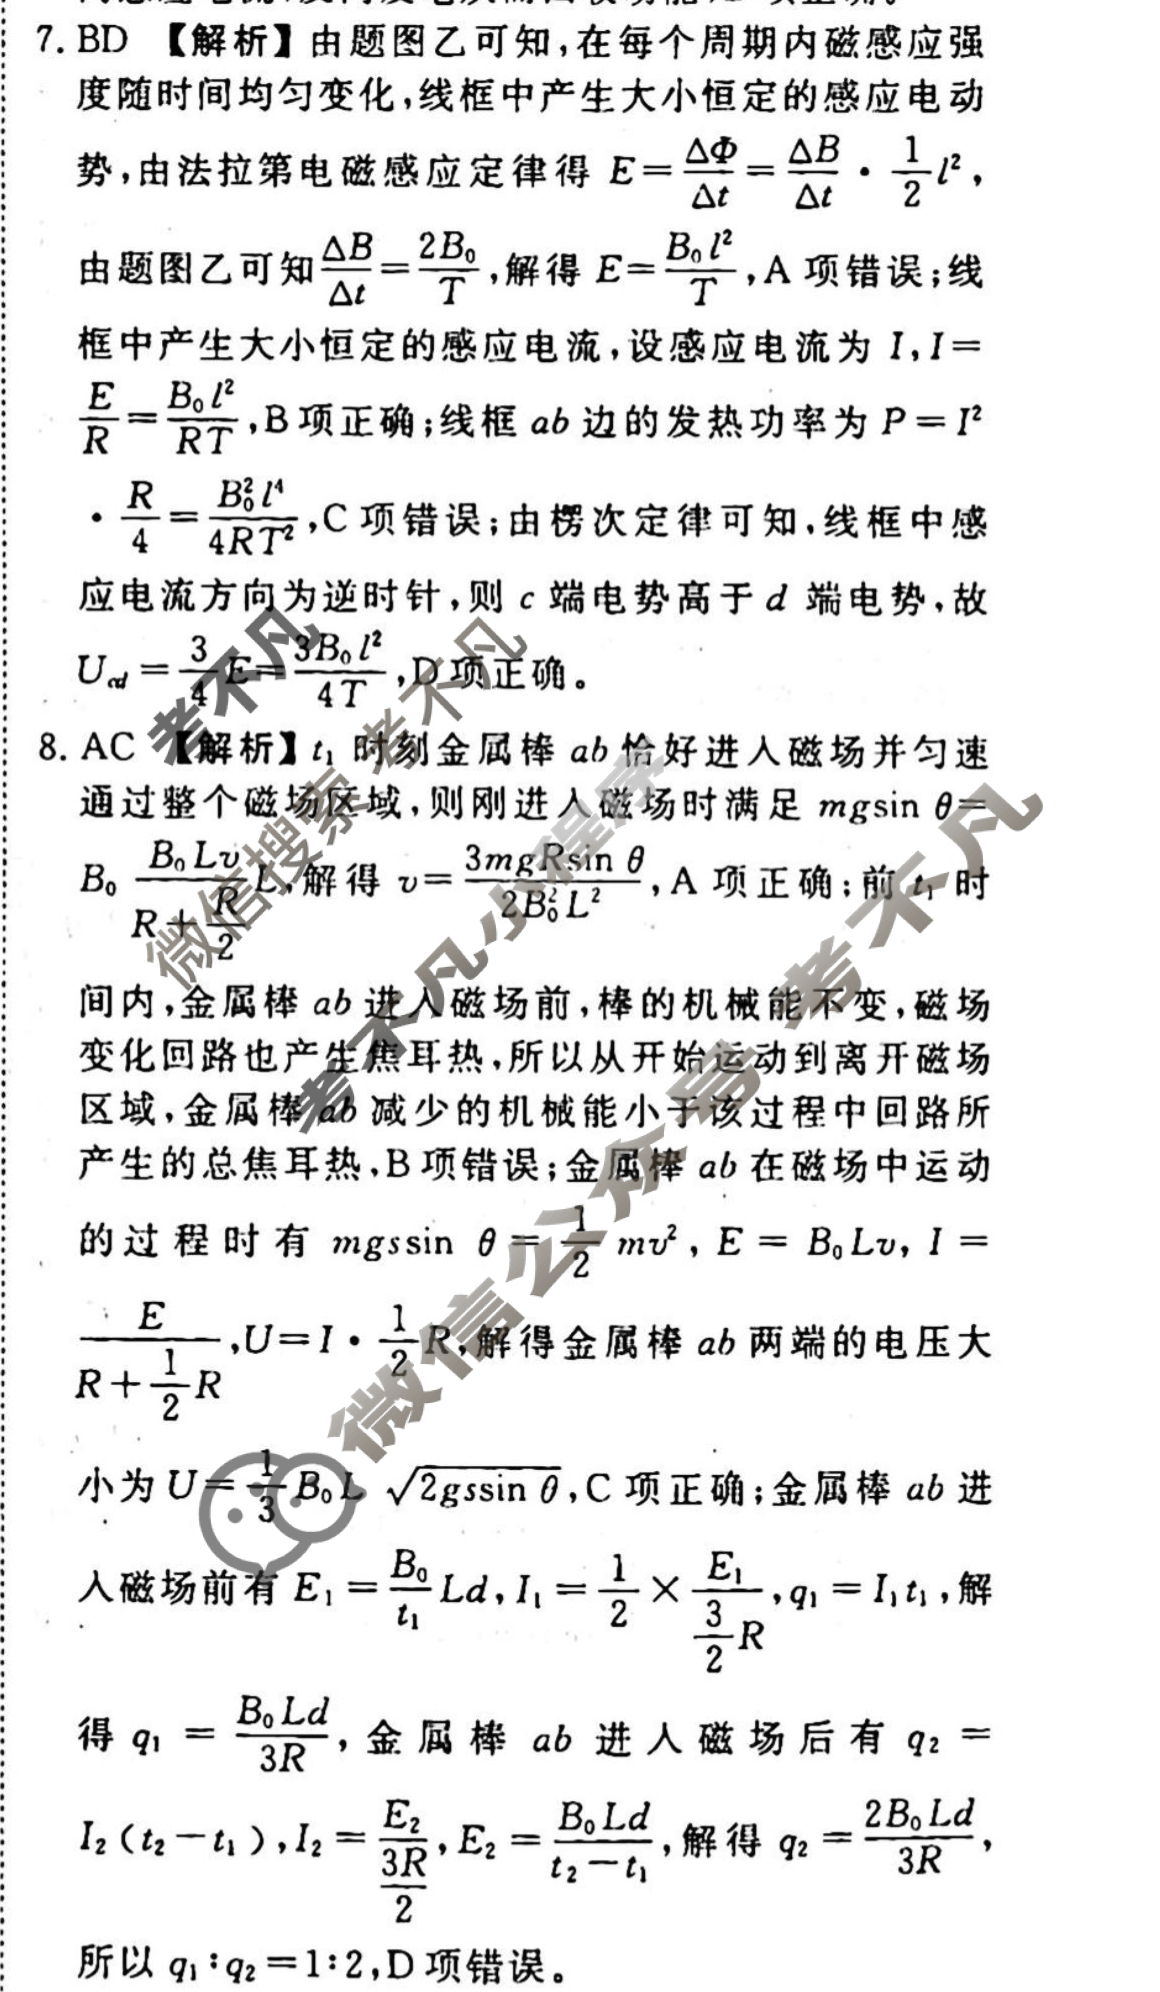 7. BD 【解析】由题图乙可知,在每个周期内磁感应强
度随时间均匀变化,线框中产生大小恒定的感应电动
势,由法拉第电磁感应定律得 E=ΔΦ/Δt=ΔB/Δt·1/2 l²,
由题图乙可知ΔB/Δt=2B₀/T,解得 E=B₀l²/T,A 项错误;线
框中产生大小恒定的感应电流,设感应电流为 I,I=
E/R=B₀l²/RT,B 项正确;线框 ab 边的发热功率为 P=I²
·R/4=B₀²l⁴/4RT²,C 项错误;由楞次定律可知,线框中感
应电流方向为逆时针,则 c 端电势高于 d 端电势,故
U_cd=3/4 E=3B₀l²/4T,D 项正确。
8. AC 【解析】t₁ 时刻金属棒 ab 恰好进入磁场并匀速
通过整个磁场区域,则刚进入磁场时满足 mgsin θ=
B₀ (B₀Lv)/(R+R/2) L,解得 v=3mgRsin θ/2B₀²L²,A 项正确;前 t₁ 时
间内,金属棒 ab 进入磁场前,棒的机械能不变,磁场
变化回路也产生焦耳热,所以从开始运动到离开磁场
区域,金属棒 ab 减少的机械能小于该过程中回路所
产生的总焦耳热,B 项错误;金属棒 ab 在磁场中运动
的过程时有 mgssin θ=1/2 mv², E=B₀Lv, I=
E/(R+1/2 R),U=I·1/2 R,解得金属棒 ab 两端的电压大
小为 U=1/3 B₀L √(2gssin θ),C 项正确;金属棒 ab 进
入磁场前有 E₁=B₀/t₁ Ld,I₁=1/2×E₁/(3/2 R),q₁=I₁t₁,解
得 q₁=B₀Ld/3R,金属棒 ab 进入磁场后有 q₂=
I₂(t₂-t₁),I₂=E₂/(3R/2),E₂=B₀Ld/(t₂-t₁),解得 q₂=2B₀Ld/3R,
所以 q₁:q₂=1:2,D 项错误。
考不凡
微信搜索 考不凡
考不凡小程序
微信公众号 考不凡